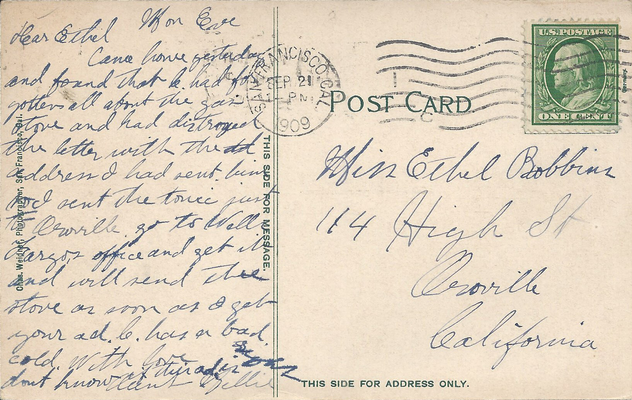 Dear Ethel Mon Eve
Came home yesterday
and found that C. had for
gotten all about the gas
stove and had distroyed
the letter with the
address I had sent him
I sent the tonic just
to Oroville, go to Wells
Fargos office and get it
and will send the
stove as soon as I get
your ad. C. has a bad
cold. With love
dont know if this ad is yours
Aunt Nellie
Chas. Weidner, Photographer, San Francisco, Cal.
THIS SIDE FOR MESSAGE.
SAN FRANCISCO, CAL.
SEP 21
1909
POST CARD.
U.S. POSTAGE
ONE CENT
Miss Ethel Bobbins
114 High St
Oroville
California
THIS SIDE FOR ADDRESS ONLY.